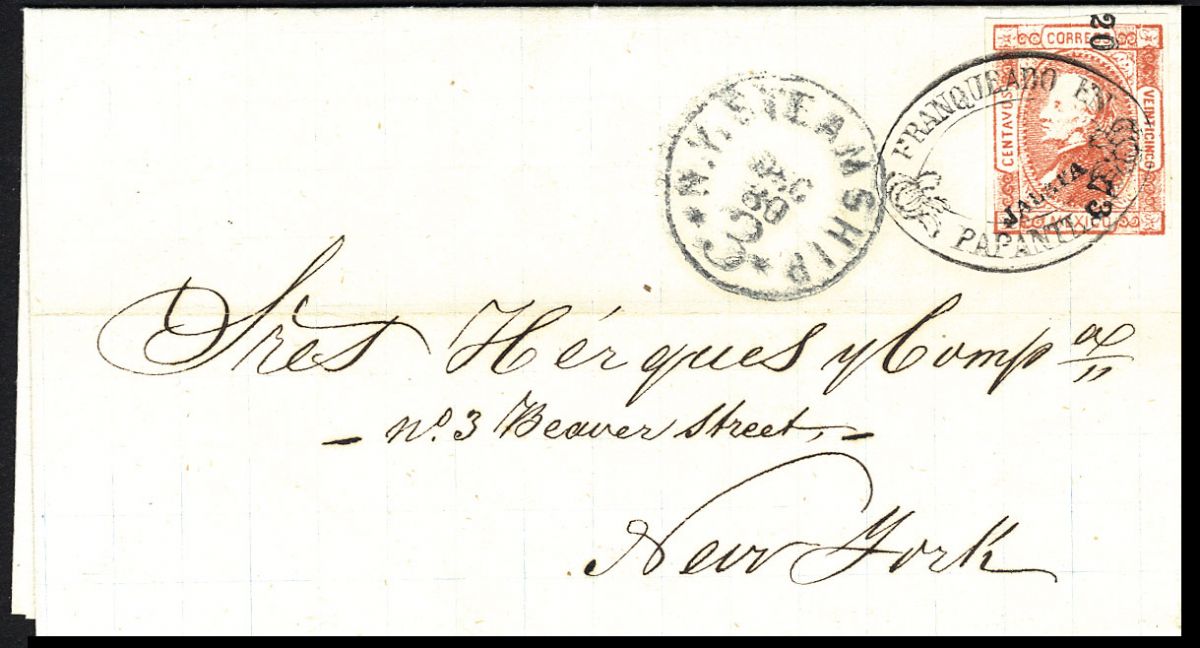 20
CORREOS
CENTAVOS
VEINTICINCO
MEXICO
FRANQUEADO EN
PAPANTLA
N.Y. STEAMSHIP
DEC
30
Sres Hérques y Comp.a
- No. 3 Beaver Street, -
New York